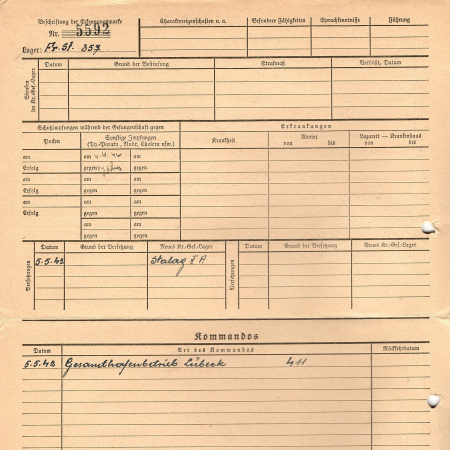 Beschriftung der Erkennungsmarke
Nr. 5592
Lager: Fr. St. 357
Charaktereigenschaften u. a.
Besondere Fähigkeiten
Sprachkenntnisse
Führung
Strafen im Kr.-Gef.-Lager
Datum
Grund der Bestrafung
Strafmaß
Verbüßt, Datum
Schutzimpfungen während der Gefangenschaft gegen
Erkrankungen
Pocken
Sonstige Impfungen
(Ty.-Paraty., Ruhr, Cholera usw.)
Krankheit
Revier
von bis
Lazarett — Krankenhaus
von bis
am am am
Erfolg gegen gegen
am am am
Erfolg gegen gegen
am am am
Erfolg gegen gegen
am am
gegen gegen
Versetzungen
Datum
Grund der Versetzung
Neues Kr.-Gef.-Lager
Versetzungen
Datum
Grund der Versetzung
Neues Kr.-Gef.-Lager
5.5.42 Stalag
Kommandos
Datum
Art des Kommandos
Rückkehrdatum
5.5.42 Gesamthafenbetrieb Lübeck 411